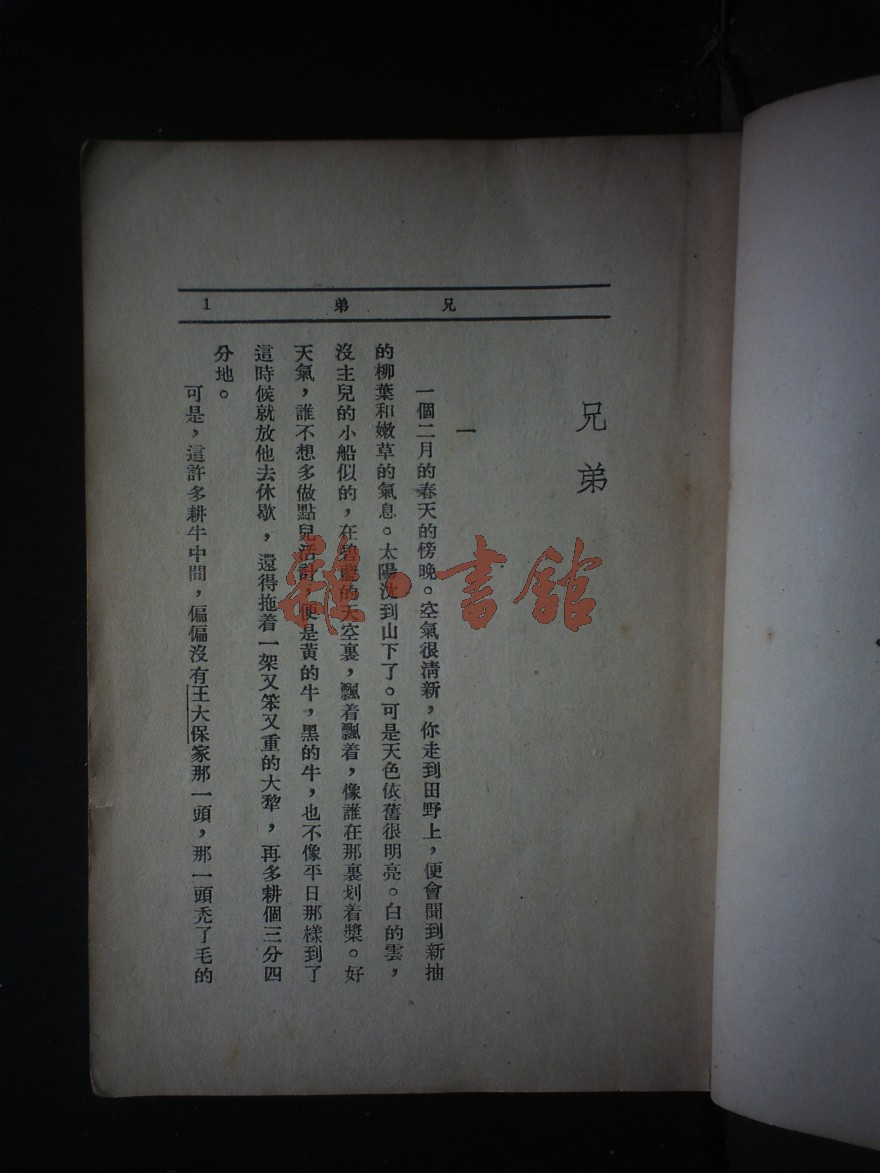 兄弟 1
兄弟
一
一個二月的春天的傍晚。空氣很清新，你走到田野上，便會聞到新抽
的柳葉和嫩草的氣息。太陽沈到山下了。可是天色依舊很明亮。白的雲，
沒主兒的小船似的，在碧藍的天空裏，飄着飄着，像誰在那裏划着槳。好
天氣，誰不想多做點兒活計，便是黃的牛，黑的牛，也不像平日那樣到了
這時候就放他去休歇，還得拖着一架又笨又重的大犂，再多耕個三分四
分地。
可是，這許多耕牛中間，偏偏沒有王大保家那一頭，那一頭禿了毛的
雜·書館